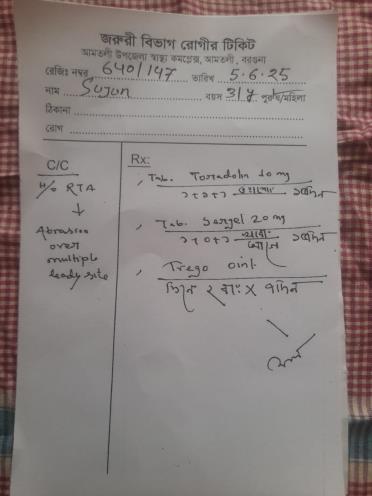 জরুরী বিভাগ রোগীর টিকিট
আমতলী উপজেলা স্বাস্থ্য কমপ্লেক্স, আমতলী, বরগুনা
রেজিঃ নম্বর 640/147 তারিখ 5.6.25
নাম Sujan বয়স 31 y পুরুষ/মহিলা
ঠিকানা
রোগ
C/C
H/o RTA
↓
Abrasion
over
multiple
body site
Rx:
Tab. Torradolin 10 mg
১+১+১
Tab. Sergel 20 mg
১+০+১
Trego oint.
দিনে ২ বার X ৭দিন